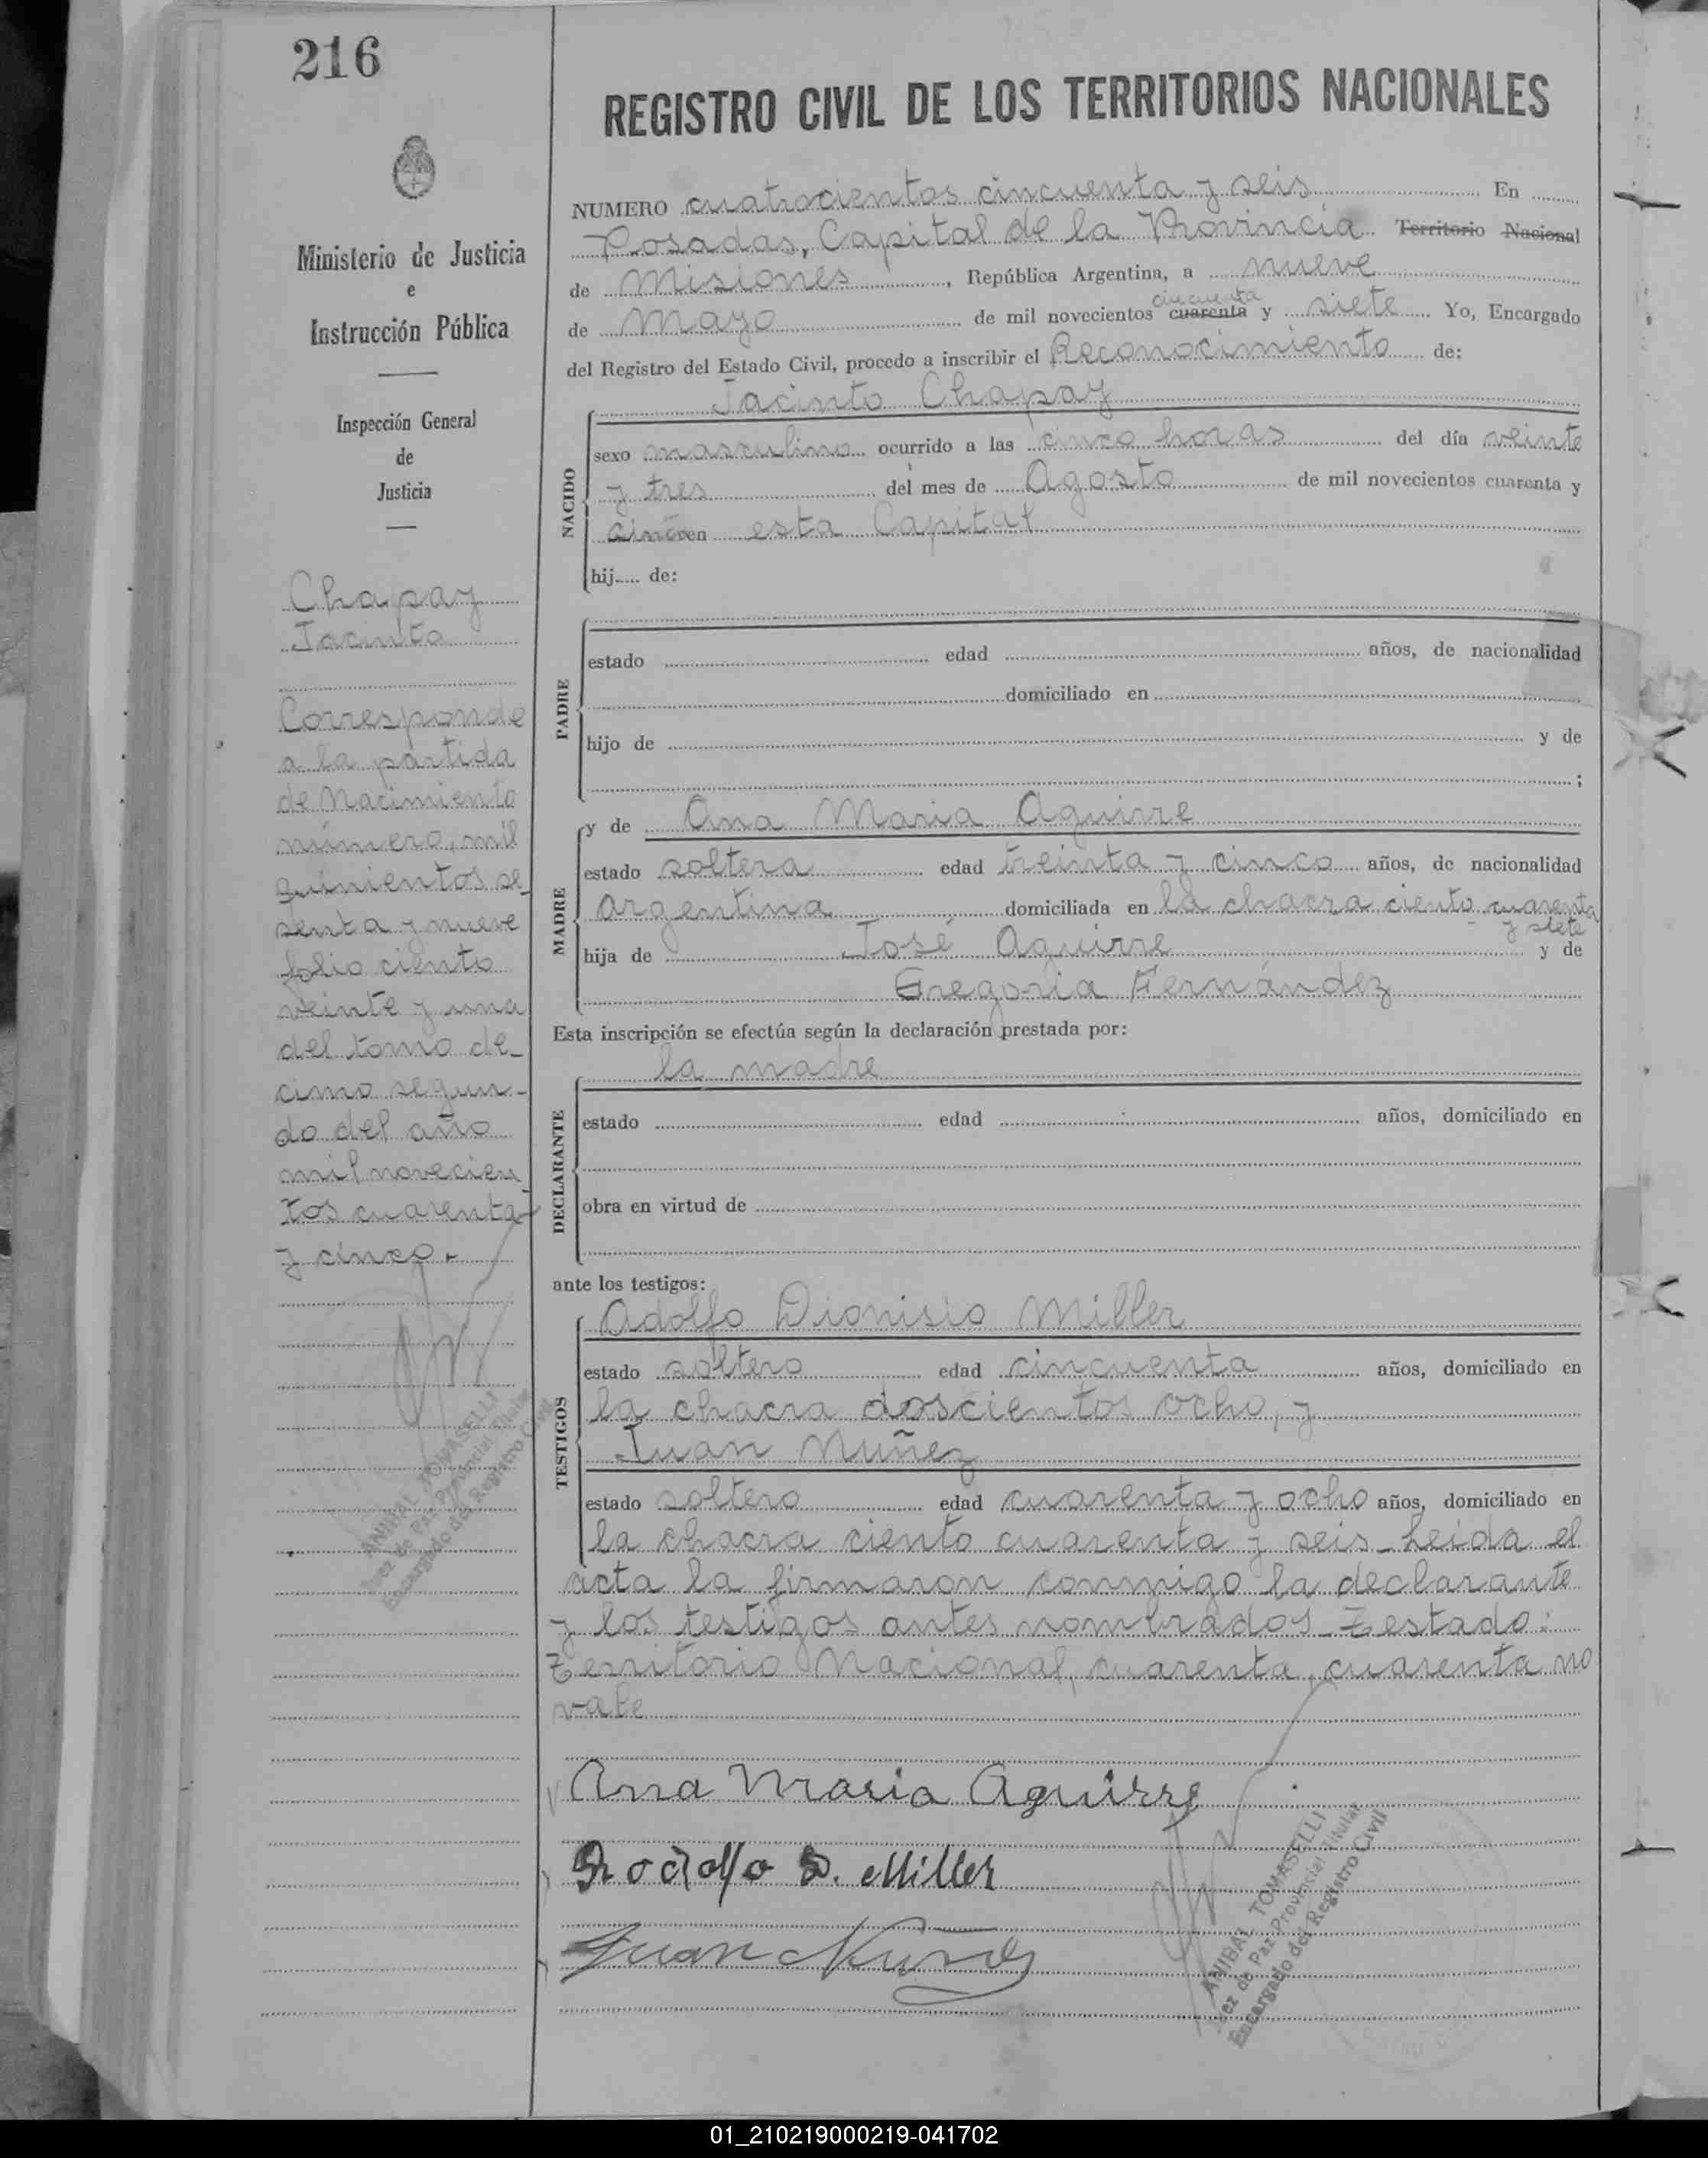 216
Ministerio de Justicia
e
Instrucción Pública
Inspección General
de
Justicia
Chapay
Jacinto
Corresponde
a la partida
de Nacimiento
número, mil
quinientos se-
senta y nueve
folio ciento
veinte y uno
del tomo de-
cimo segun-
do del año
mil novecien-
tos cuarenta
y cinco.-
ANIBAL TOMASELLI
Juez de Paz Provincial Titular
Encargado del Registro Civil
REGISTRO CIVIL DE LOS TERRITORIOS NACIONALES
NUMERO cuatrocientos cincuenta y seis En
Posadas, Capital de la Provincia Territorio Nacional
de Misiones, República Argentina, a nueve
de Mayo de mil novecientos cuarenta cincuenta y siete Yo, Encargado
del Registro del Estado Civil, procedo a inscribir el Reconocimiento de:
Jacinto Chapay
NACIDO
sexo masculino ocurrido a las cinco horas del día veinte
y tres del mes de Agosto de mil novecientos cuarenta y
cinco en esta Capital
hij.... de:
PADRE
estado edad años, de nacionalidad
domiciliado en
hijo de y de
;
MADRE
y de Ana Maria Aguirre
estado soltera edad treinta y cinco años, de nacionalidad
argentina domiciliada en la chacra ciento cuarenta
y siete
hija de José Aguirre y de
Gregoria Fernández
Esta inscripción se efectúa según la declaración prestada por:
la madre
DECLARANTE
estado edad años, domiciliado en
obra en virtud de
ante los testigos:
TESTIGOS
Adolfo Dionisio Miller
estado soltero edad cincuenta años, domiciliado en
la chacra doscientos ocho, y
Juan Nuñez
estado soltero edad cuarenta y ocho años, domiciliado en
la chacra ciento cuarenta y seis - Leida el
acta la firmaron conmigo la declarante
y los testigos antes nombrados - Testado:
Territorio Nacional, cuarenta, cuarenta no
vale
Ana Maria Aguirre
Rodolfo D. Miller
Juan Nuñez
ANIBAL TOMASELLI
Juez de Paz Provincial Titular
Encargado del Registro Civil
01_210219000219-041702